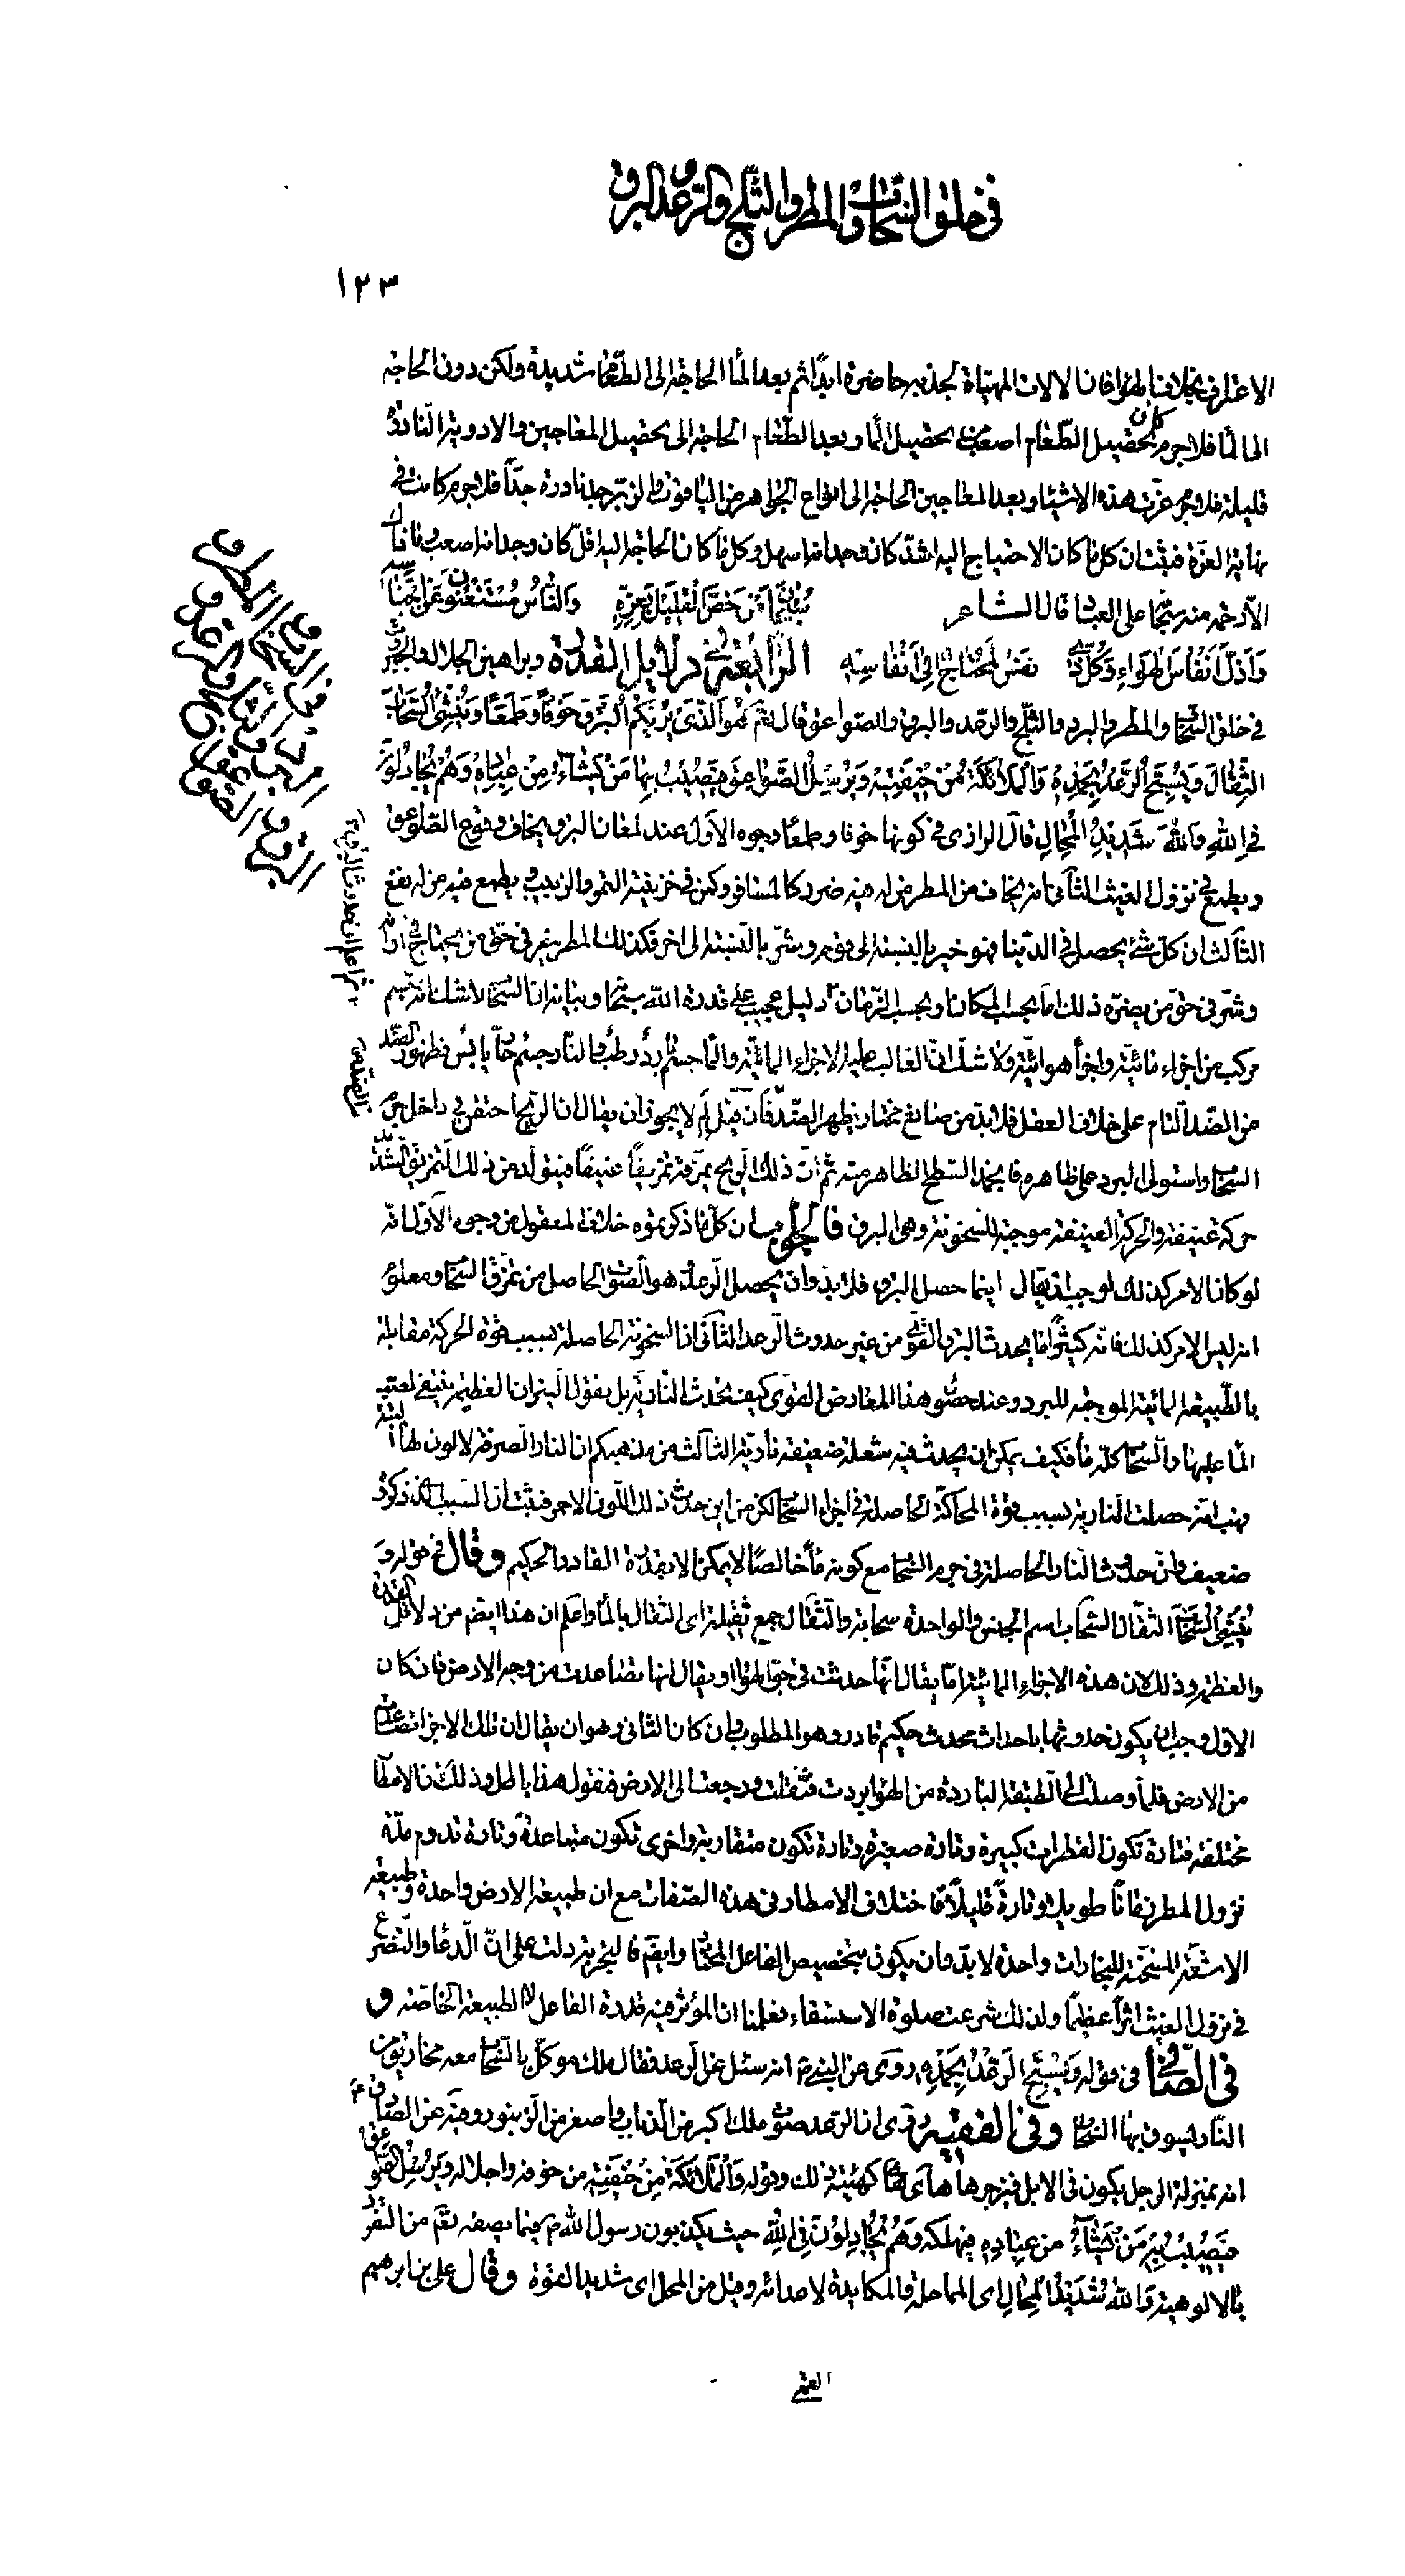 في خلق السحاب والمطر والثلج والرعد والبرق
١٢٣
الاغتراف بخلاف الهواء فان الالات المهيأة لجذبه حاضرة ابدا ثم بعد الماء الحاجة الى الطعام شديدة ولكن دون الحاجة
الى الماء فلا جرم كان تحصيل الطعام اصعب من تحصيل الماء وبعد الطعام الحاجة الى تحصيل المعاجين والادوية النادرة
قليلة فلا جرم عزت هذه الاشياء وبعد المعاجين الحاجة الى انواع الجواهر من اليواقوت والزبرجد نادرة جدا فلا جرم كانت في
نهاية العزة فثبت ان كل ما كان الاحتياج اليه اشد كان وجدانه اسهل وكل ما كان الحاجة اليه اقل كان وجدانه اصعب وما ذاك
الا رحمة منه سبحانه على العباد قال الشاعر سُبْحَانَ مَنْ خَصَّ القَلِيلَ بِعِزِّهِ وَالنَّاسُ مُسْتَغْنُونَ عَنْ اَجْنَاسِهِ
وَاَذَلَّ اَنْفَاسَ الهَوَاءِ وَكُلُّ ذِي نَفَسٍ لَمُحْتَاجٌ اِلَى اَنْفَاسِهِ الرابعة في دلايل القدرة وبراهين الجلال والجبروت
في خلق السحاب والمطر والبرد والثلج والرعد والبرق والصواعق قال تعم هُوَ الَّذِي يُرِيكُمُ الْبَرْقَ خَوْفًا وَطَمَعًا وَيُنْشِئُ السَّحَابَ
الثِّقَالَ وَيُسَبِّحُ الرَّعْدُ بِحَمْدِهِ وَالْمَلَائِكَةُ مِنْ خِيفَتِهِ وَيُرْسِلُ الصَّوَاعِقَ فَيُصِيبُ بِهَا مَنْ يَشَاءُ مِنْ عِبَادِهِ وَهُمْ يُجَادِلُونَ
فِي اللّٰهِ وَاللّٰهُ شَدِيدُ الْمِحَالِ قال الرازي في كونها خوفا وطمعا وجوه الاول عند لمعان البرق يخاف وقوع الصواعق
ويطمع في نزول الغيث الثاني انه يخاف من المطر من له فيه ضرر كالمسافر وكمن في خزينته التمر والزبيب ويطمع فيه من له نفع
الثالث ان كل شئ يحصل في الدنيا فهو خير بالنسبة الى قوم وشر بالنسبة الى اخر فكذلك المطر خير في حق من يحتاج في اوانه
وشر في حق من يضره ذلك اما بحسب المكان او بحسب الزمان دليل عجيب على قدرة الله سبحانه وبيانه ان السحاب لا شك انه جسم
مركب من اجزاء مائية واجزاء هوائية ولا شك ان الغالب عليه الاجزاء المائية والماء جسم بارد رطب والنار جسم حار يابس فظهور الضد
من الضد التام على خلاف العقل فلا بد من صانع مختار يظهر الضد فان قيل لم لا يجوز ان يقال ان الريح احتقن في داخل جرم
السحاب واستولى البرد على ظاهره فانجمد السطح الظاهر منه ثم ان ذلك الريح يمزقه تمزيقا عنيفا فيتولد من ذلك التمزيق الشديد
حركة عنيفة والحركة العنيفة موجبة للسخونة وهي البرق فالجواب ان كل ما ذكرتموه خلاف المعقول من وجوه الاول انه
لو كان الامر كذلك لوجب ان يقال اينما حصل البرق فلا بد وان يحصل الرعد هو الصوت الحاصل من تمزق السحاب ومعلوم
انه ليس الامر كذلك فانه كثيرا ما يحدث البرق القوي من غير حدوث الرعد الثاني ان السخونة الحاصلة بسبب قوة الحركة مقابلة
بالطبيعة المائية الموجبة للبرد وعند حصول هذا المعارض القوي كيف تحدث النارية بل نقول النيران العظيمة ينتفي لصب
الماء عليها والسحاب كله ماء فكيف يمكن ان يحدث فيه شعلة ضعيفة نارية الثالث من مذهبكم ان النار الصرفة لا لون لها البتة
فهب انه حصلت النارية بسبب قوة المحاكة الحاصلة في اجزاء السحاب لكن من اين حدث ذلك اللون الاحمر فثبت ان السبب الذي ذكروه
ضعيف وان حدوث النار الحاصلة في جرم السحاب مع كونه ماء خالصا لا يمكن الا بقدرة القادر الحكيم وقال في قوله وَ
يُنْشِئُ السَّحَابَ الثقال السحاب اسم الجنس والواحدة سحابة والثقال جمع ثقيلة اى الثقال بالماء واعلم ان هذا ايضم من دلائل القدرة
والعظمة وذلك لان هذه الاجزاء المائية اما يقال انها حدثت في جو الهواء او يقال انها تصاعدت من وجه الارض فان كان
الاول وجب ان يكون حدوثها باحداث محدث حكيم قادر وهو المطلوب وان كان الثاني وهو ان يقال ان تلك الاجزاء تصاعدت
من الارض فلما وصلت الى الطبقة الباردة من الهواء بردت فثقلت ورجعت الى الارض فنقول هذا باطل وذلك ان الامطار
مختلفة فتارة تكون القطرات كبيرة وتارة صغيرة وتارة تكون متقاربة واخرى تكون متباعدة وتارة تدوم مدة
نزول المطر زمانا طويلا وتارة قليلا فاختلاف الامطار في هذه الصفات مع ان طبيعة الارض واحدة وطبيعة
الاشعة المسخنة للبخارات واحدة لا بد وان يكون بتخصيص الفاعل المختار وايضم فالتجربة دلت على ان الدعاء والتضرع
في نزول الغيث اثرا عظيما ولذلك شرعت صلوة الاستسقاء فعلمنا ان المؤثر فيه قدرة الفاعل لا الطبيعة الخاصة و
في الصافي في قوله وَيُسَبِّحُ الرَّعْدُ بِحَمْدِهِ روى عن النبي ص انه سئل عن الرعد فقال ملك موكل بالسحاب معه مخاريق من
النار يسوق بها السحاب وفي الفقيه روى ان الرعد صوت ملك اكبر من الذباب واصغر من الزنبور وفيه عن الصادق ع
انه بمنزلة الرجل يكون في الابل فيزجرها هاى هاى كهيئة ذلك وقوله وَالْمَلَائِكَةُ مِنْ خِيفَتِهِ من خوفه واجلاله وَيُرْسِلُ الصَّوَاعِقَ
فَيُصِيبُ بِهَا مَنْ يَشَاءُ من عباده فيهلكه وَهُمْ يُجَادِلُونَ فِي اللّٰهِ حيث يكذبون رسول الله ص فيما يصفه تعم من التفرد
بالالوهية وَاللّٰهُ شَدِيدُ الْمِحَالِ اى المماحلة والمكايدة لاعدائه وقيل من المحل اى شديد القوة وقال علي بن ابرهيم
القمي